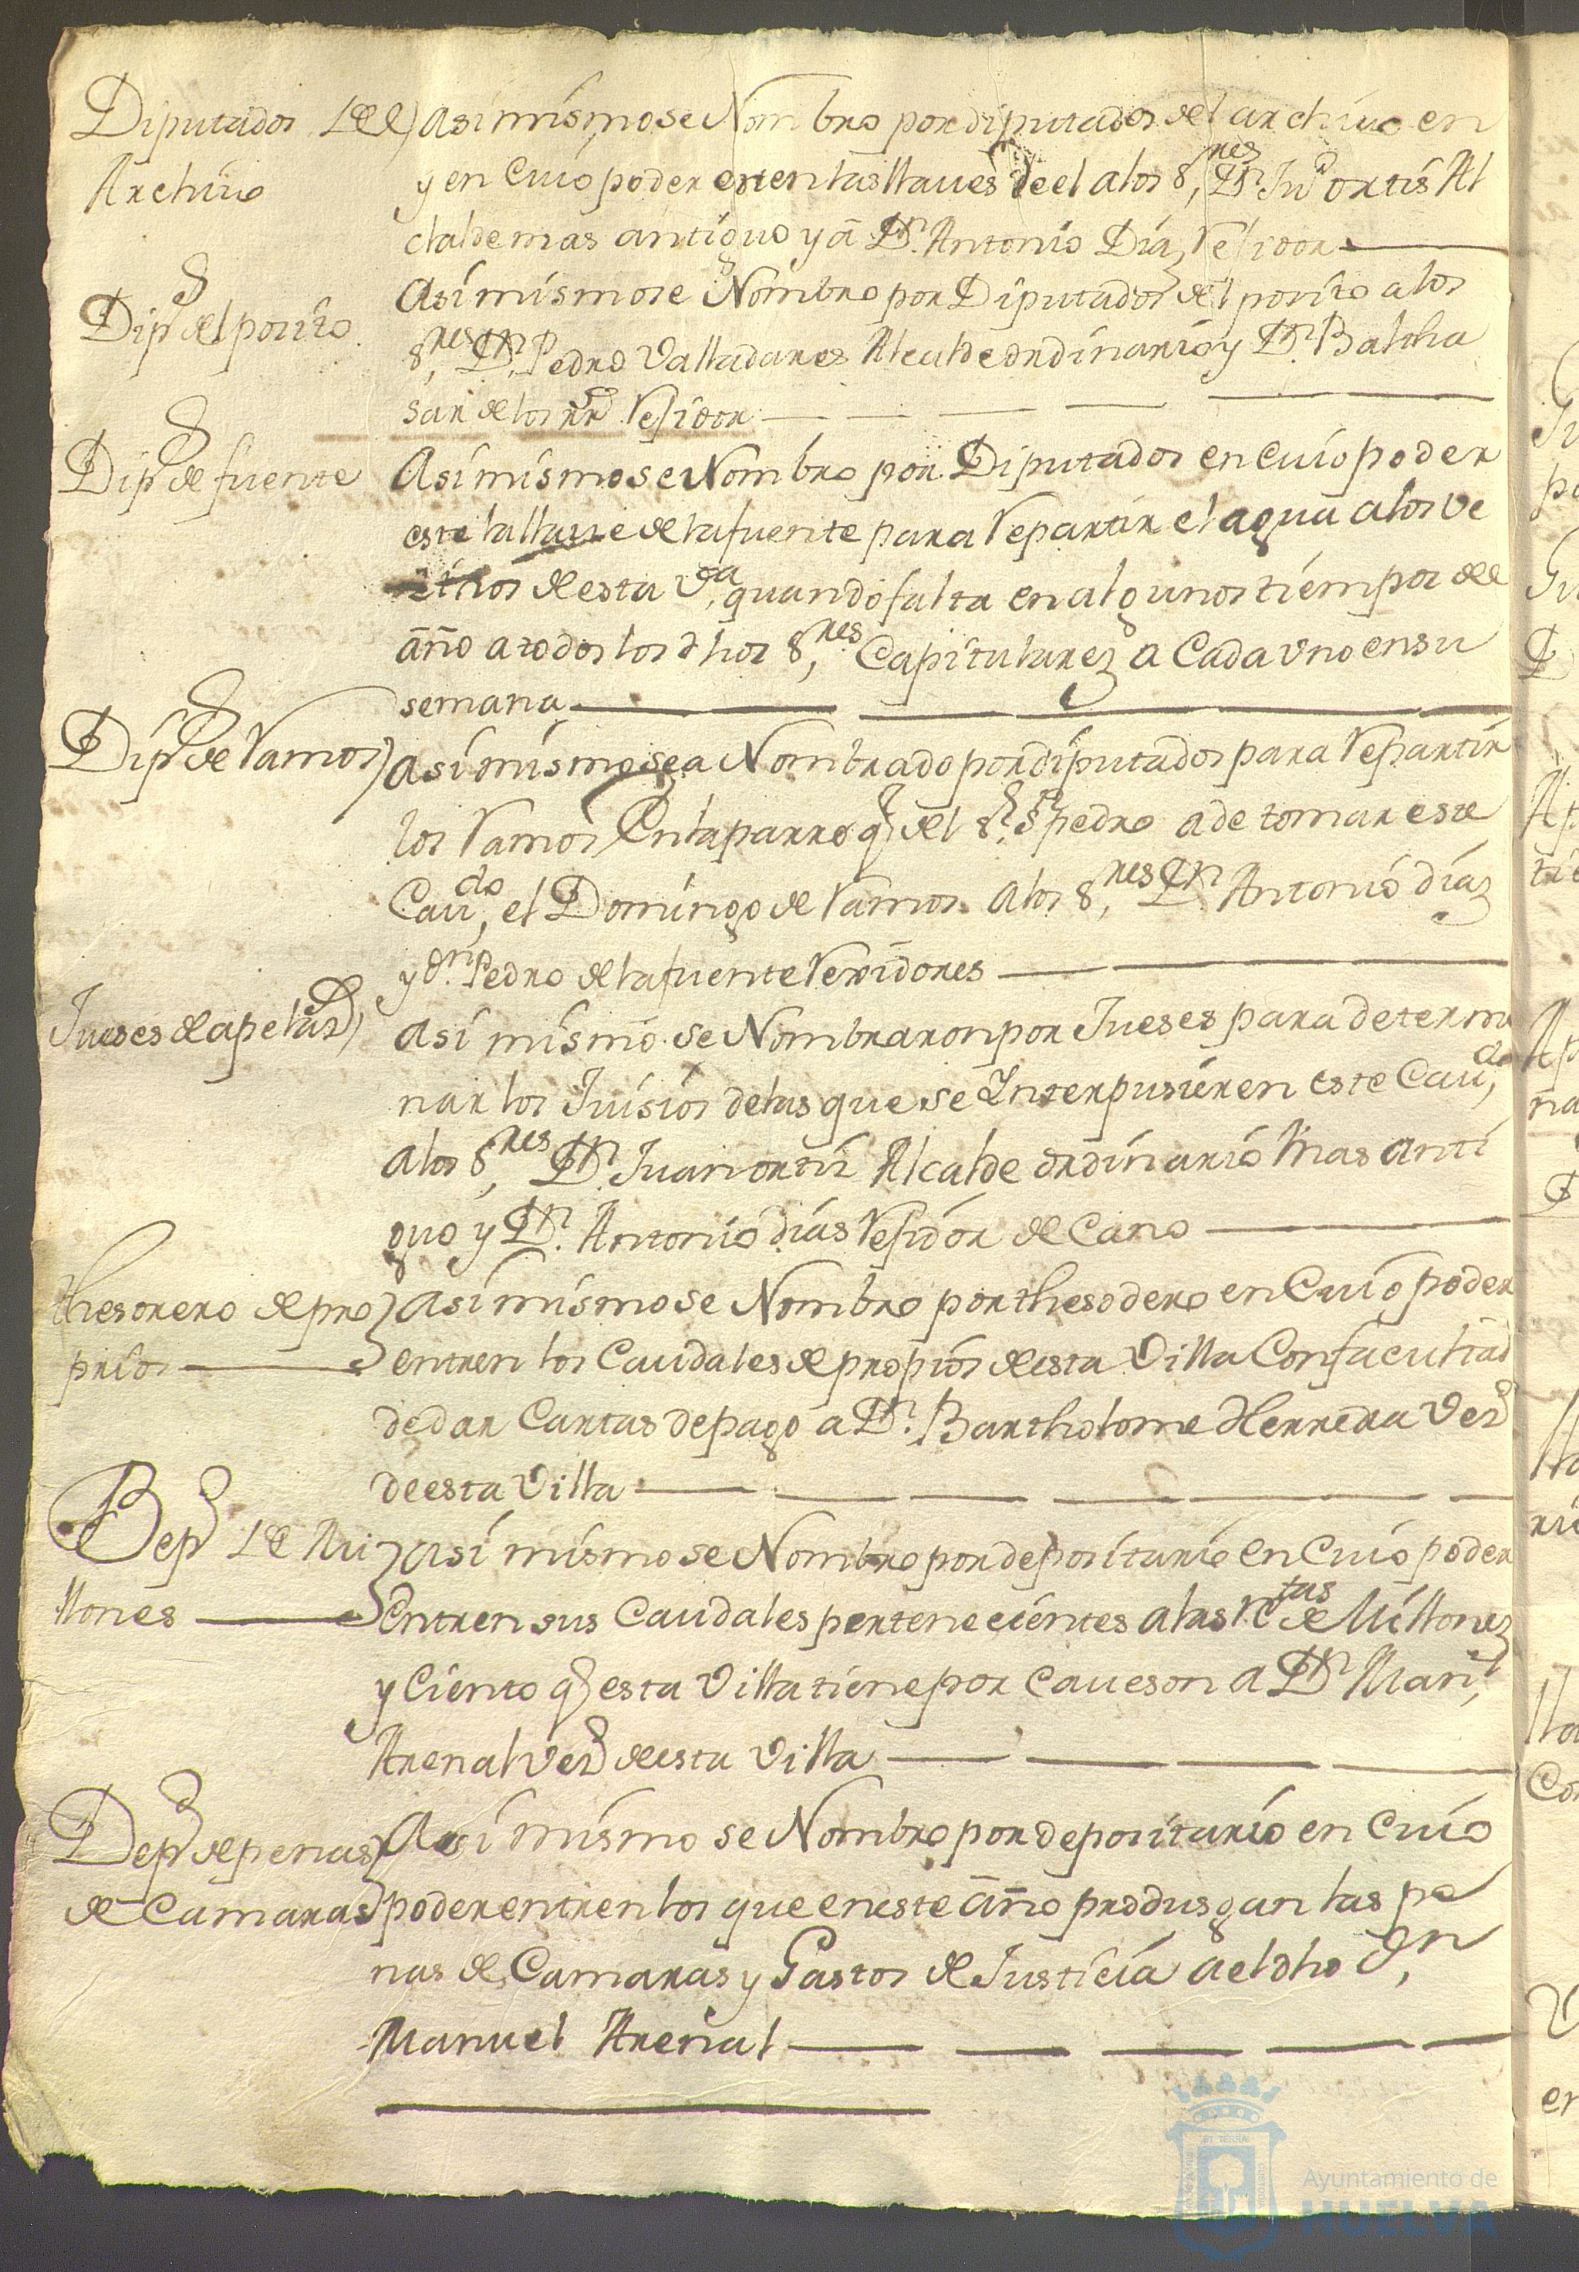 Diputados de el
Archivo
Asimismo se Nombro por diputados del archivo en
y en Cuio poder esten las llaves de el a los S,res Dn. Jun Ortis Al
calde mas antiguo y a Dn. Antonio Diaz Residor
Dipdos del posito
Asi mismo se Nombro por Diputados del posito a los
S,res Dn. Pedro Valladares Alcalde ordinario y Dn. Baltha
sar de los Residor
Dipdos de fuente
Asi mismo se Nombro por Diputados en cuio poder
este la llave de la fuente para Repartir el agua a los ve
sinos de esta Va, quando falta en algunos tiempos del
año a todos los dhos S,res Capitulares a Cada uno en su
semana
Dipdos de Ramos
Asi mismo se a Nombrado por diputados para Repartir
los Ramos En la parroq del Sr. Sn pedro a de tomar este
Cav,do el Domingo de Ramos a los S,res Dn Antonio diaz
y Dn. Pedro de la fuente Rexidores
Jueses de apelaz
Asi mismo se Nombraron por Jueses para determi
nar los Juisios de las que se Interpusieren este Cav,do
a los S,res Dn. Juan ortiz Alcalde ordinario Mas anti
guo y Dn. Antonio dias Residor de Cano
thesorero de pro
prios
Asi mismo se Nombro por thesodero en Cuio poder
entren los Caudales de propios de esta Villa Con facultad
de dar Cartas de pago a Dn. Bartholome Herrera Vez
de esta Villa
Depo de Mi
llones
Asi mismo se Nombro por depositario en Cuio poder
Entren sus Caudales pertenecientes a las Rtas de Millones
y Ciento q esta Villa tiene por Caveson a Dn Man,l
Arenal Vez de esta Villa
Depo de penas
de Camaras
Asi mismo se Nombro por depositario en Cuio
poder entren los que en este año produsgan las pe
nas de Camaras y Gastos de Justicia a el dho D,n
Manuel Arenal
Ayuntamiento de
HUELVA